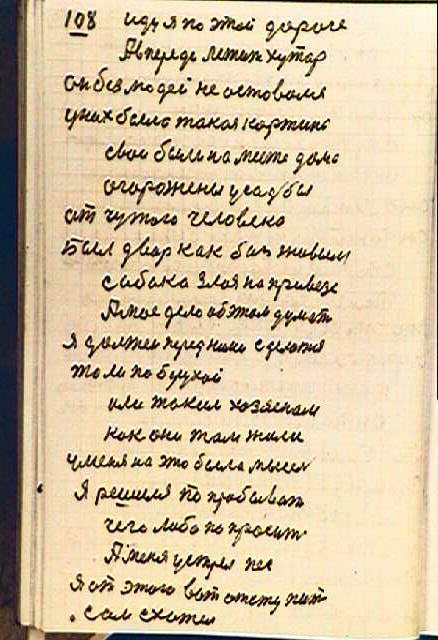 108 иду я по этой дороге
А впереде летит хутор
он без людей не оставался
у них было такая картина
свои были на месте дома
огорожены усадбы
от чужого человека
Был двор как бы живым
собака злая на привезе
А мое дело об этом думать
я должен перед ними сделатся
то ли побрухой
или таким хозяеном
как они там жили
у меня на это была мысля
Я решился по пробывать
чего либо по просить
А меня устрел пес
Я от этого вот
сам схотел